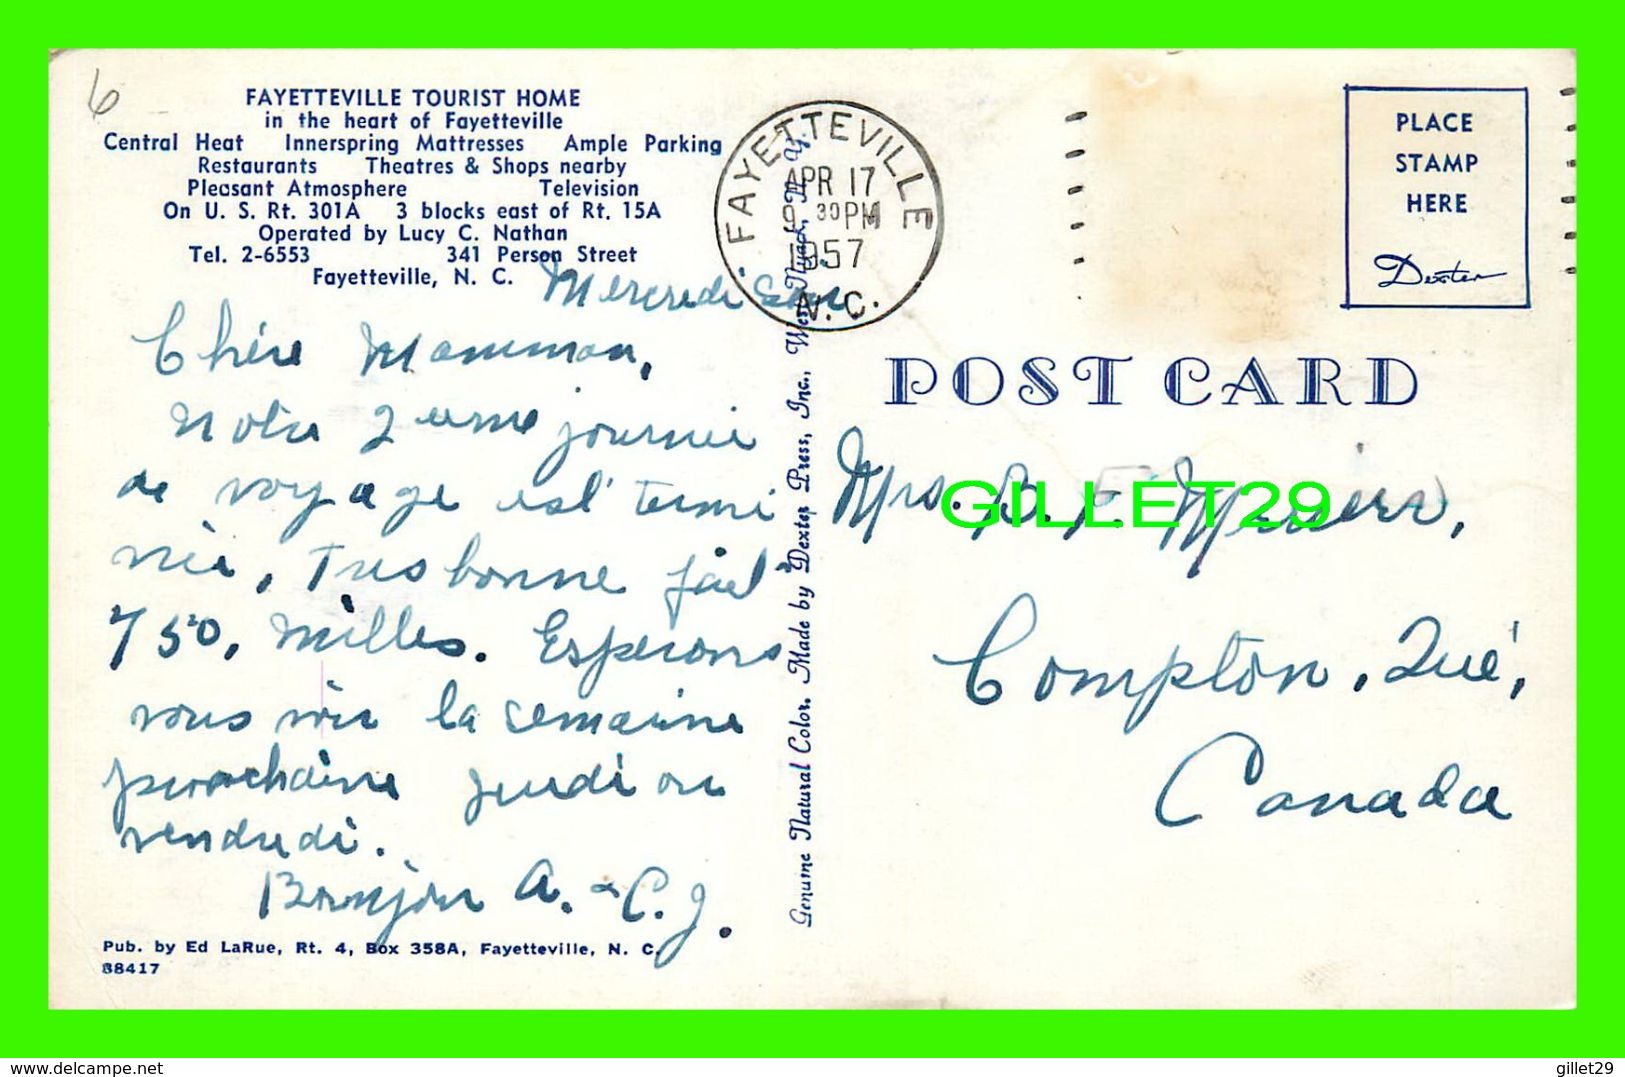 6
FAYETTEVILLE TOURIST HOME
in the heart of Fayetteville
Central Heat Innerspring Mattresses Ample Parking
Restaurants Theatres & Shops nearby
Pleasant Atmosphere Television
On U. S. Rt. 301A 3 blocks east of Rt. 15A
Operated by Lucy C. Nathan
Tel. 2-6553 341 Person Street
Fayetteville, N. C.
Mercredi Soir
Chère Mamman,
Notre 2ieme journée
de voyage est termi
née, Tres bonne fait
750, milles. Espérons
vous voir la semaine
prochaine jeudi ou
vendredi.
Bonjour A. & C. J.
Pub. by Ed LaRue, Rt. 4, Box 358A, Fayetteville, N. C.
88417
Genuine Natural Color. Made by Dexter Press, Inc., West Nyack, N. Y.
FAYETTEVILLE
APR 17
9 30 PM
1957
N. C.
PLACE
STAMP
HERE
Dexter
POST CARD
Mrs. B. F.
GILLET29
Compton, Qué,
Canada
www.delcampe.net
gillet29